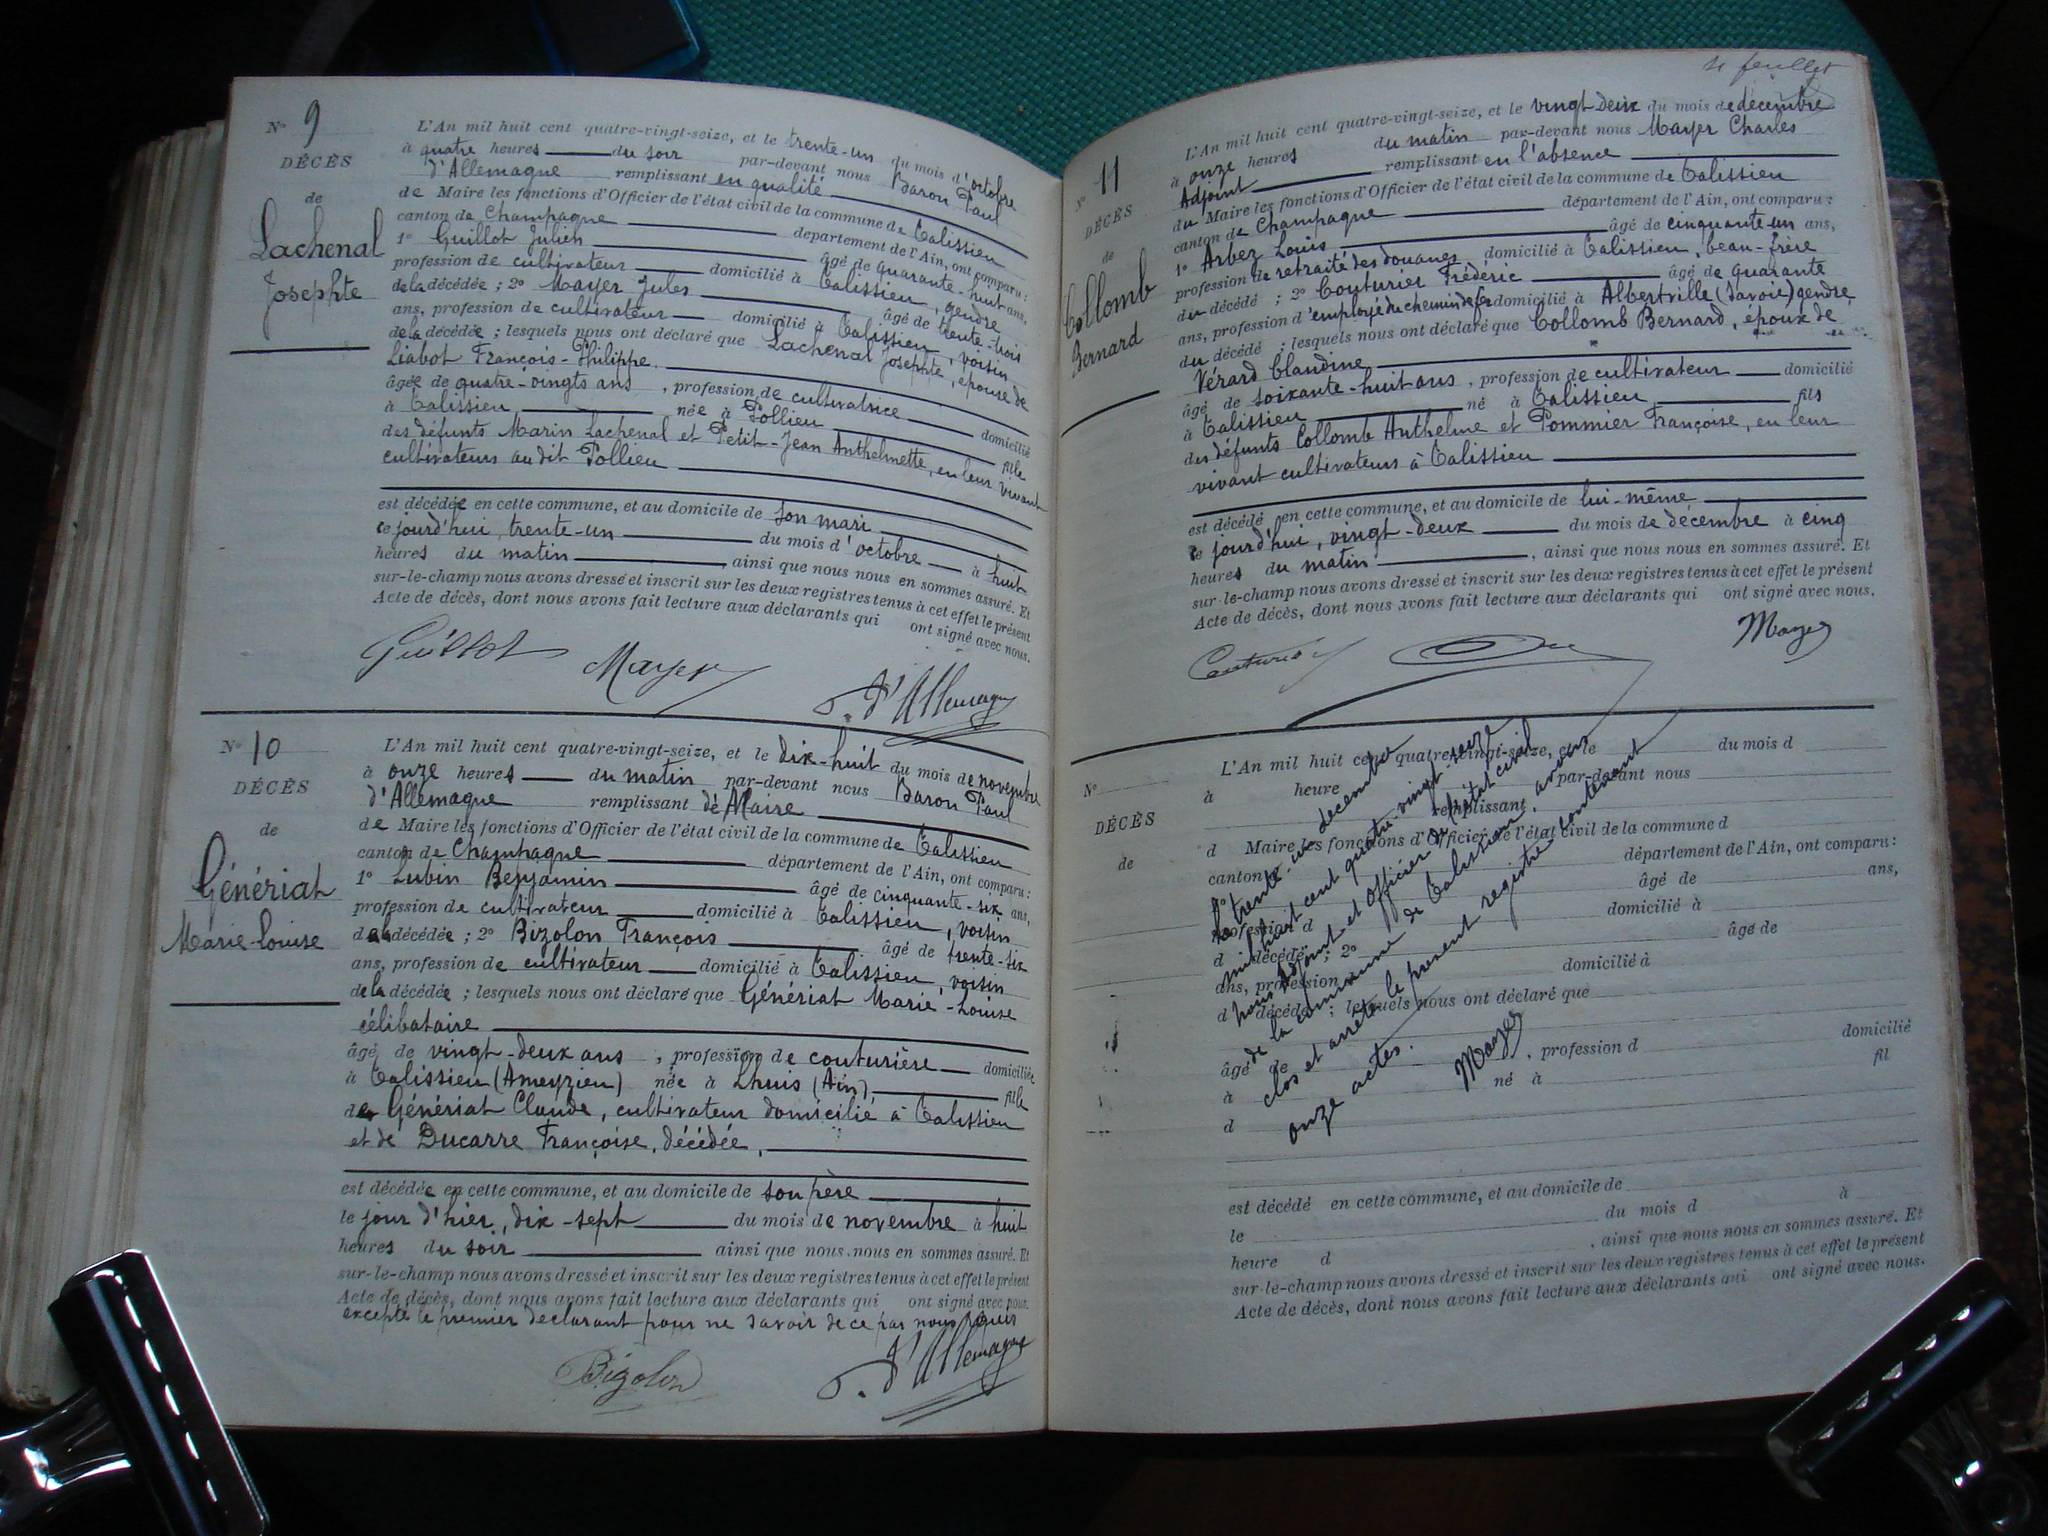 N° 9
DÉCÈS
de
Lachenal
Josephte
L'An mil huit cent quatre-vingt-seize, et le trente-un du mois d'octobre
à quatre heures du soir par-devant nous Baron Paul
d'Allemagne remplissant en qualité
de Maire les fonctions d'Officier de l'état civil de la commune de Talissieu
canton de Champagne département de l'Ain, ont comparu :
1° Guillot Julien âgé de quarante-huit ans,
profession de cultivateur domicilié à Talissieu, gendre
de la décédée ; 2° Mayer Jules âgé de trente-trois
ans, profession de cultivateur domicilié à Talissieu, voisin
de la décédée ; lesquels nous ont déclaré que Lachenal Josephte, épouse de
Liabot François-Philippe.
âgée de quatre-vingts ans, profession de cultivatrice domicilié
à Talissieu née à Pollieu fille
des défunts Marin Lachenal et Petit-Jean Anthelmette, en leur vivant
cultivateurs au dit Pollieu
est décédée en cette commune, et au domicile de son mari
ce jourd'hui, trente-un du mois d'octobre à huit
heures du matin, ainsi que nous nous en sommes assuré. Et
sur-le-champ nous avons dressé et inscrit sur les deux registres tenus à cet effet le présent
Acte de décès, dont nous avons fait lecture aux déclarants qui ont signé avec nous.
Guillot Mayer P. d'Allemagne
N° 10
DÉCÈS
de
Génériat
Marie-Louise
L'An mil huit cent quatre-vingt-seize, et le dix-huit du mois de novembre
à onze heures du matin par-devant nous Baron Paul
d'Allemagne remplissant de Maire
de Maire les fonctions d'Officier de l'état civil de la commune de Talissieu
canton de Champagne département de l'Ain, ont comparu :
1° Lubin Benjamin âgé de cinquante-six ans,
profession de cultivateur domicilié à Talissieu, voisin
de la décédée ; 2° Bizolon François âgé de trente-six
ans, profession de cultivateur domicilié à Talissieu, voisin
de la décédée ; lesquels nous ont déclaré que Génériat Marie-Louise
célibataire
âgé de vingt-deux ans, profession de couturière domiciliée
à Talissieu (Ameyzieu) née à Lhuis (Ain), fille
de Génériat Claude, cultivateur domicilié à Talissieu
et de Ducarre Françoise, décédée,
est décédée en cette commune, et au domicile de son père
le jour d'hier, dix-sept du mois de novembre à huit
heures du soir ainsi que nous nous en sommes assuré. Et
sur-le-champ nous avons dressé et inscrit sur les deux registres tenus à cet effet le présent
Acte de décès, dont nous avons fait lecture aux déclarants qui ont signé avec nous.
excepté le premier déclarant pour ne savoir de ce par nous requis
Bizolon P. d'Allemagne
feuillet
N° 11
DÉCÈS
de
Collomb
Bernard
L'An mil huit cent quatre-vingt-seize, et le vingt deux du mois de décembre
à onze heures du matin par-devant nous Mayer Charles
Adjoint remplissant en l'absence
du Maire les fonctions d'Officier de l'état civil de la commune de Talissieu
canton de Champagne département de l'Ain, ont comparu :
1° Arbez Louis âgé de cinquante-un ans,
profession de retraité des douanes domicilié à Talissieu, beau-frère
du décédé ; 2° Couturier Frédéric âgé de quarante
ans, profession d'employé du chemin de fer domicilié à Albertville (Savoie) gendre
du décédé ; lesquels nous ont déclaré que Collomb Bernard, époux de
Vérard Clandine
âgé de soixante-huit ans, profession de cultivateur domicilié
à Talissieu né à Talissieu, fils
des défunts Collomb Anthelme et Pommier Françoise, en leur
vivant cultivateurs à Talissieu
est décédé en cette commune, et au domicile de lui-même
ce jourd'hui, vingt-deux du mois de décembre à cinq
heures du matin, ainsi que nous nous en sommes assuré. Et
sur-le-champ nous avons dressé et inscrit sur les deux registres tenus à cet effet le présent
Acte de décès, dont nous avons fait lecture aux déclarants qui ont signé avec nous.
Couturier Mayer
N°
DÉCÈS
de
L'An mil huit cent quatre-vingt-seize, et le du mois d
à heure par-devant nous
remplissant
d Maire les fonctions d'Officier de l'état civil de la commune d
canton d département de l'Ain, ont comparu :
1° âgé de ans,
profession d domicilié à
d décédé ; 2° âgé de
ans, profession domicilié à
d décédé ; lesquels nous ont déclaré que
âgé de , profession d domicilié
à né à fil
d
est décédé en cette commune, et au domicile de
le du mois d à
heure d , ainsi que nous nous en sommes assuré. Et
sur-le-champ nous avons dressé et inscrit sur les deux registres tenus à cet effet le présent
Acte de décès, dont nous avons fait lecture aux déclarants qui ont signé avec nous.
Le trente-un décembre
mil huit cent quatre-vingt-seize
nous Adjoint et Officier de l'état civil
de la commune de Talissieu, avons
clos et arrêté le présent registre contenant
onze actes.
Mayer